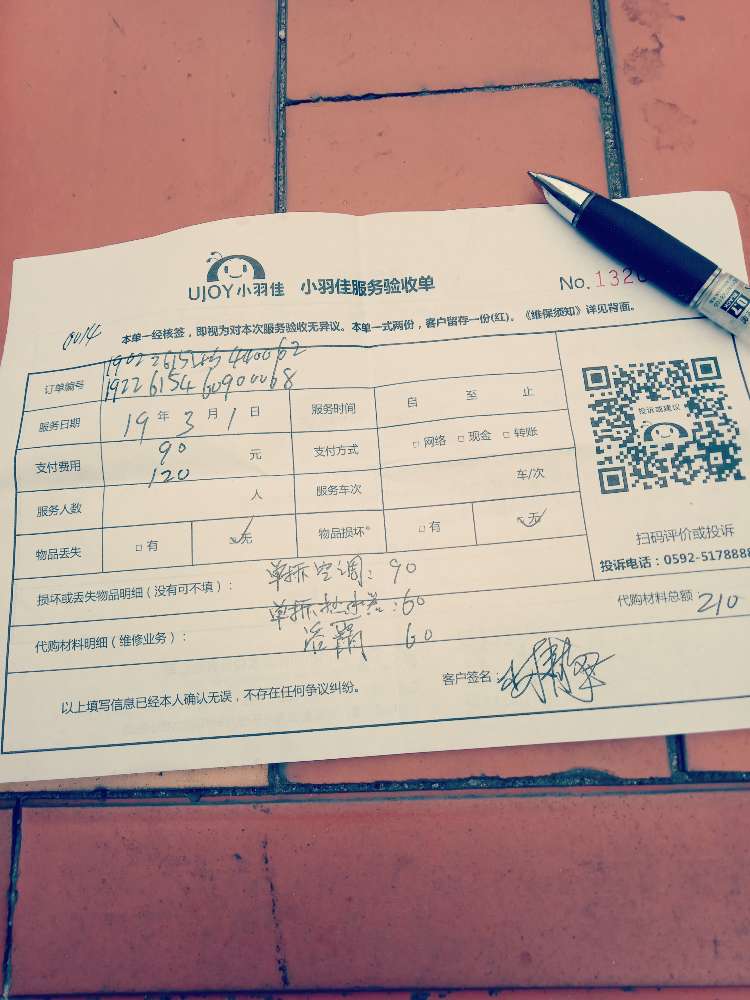 UJOY小羽佳 小羽佳服务验收单 No. 132
0014
本单一经核签，即视为对本次服务验收无异议。本单一式两份，客户留存一份(红)。《维保须知》详见背面。
订单编号
1922615460900068
服务日期 19年3月1日 服务时间 自 至 止
支付费用 90 120 元 支付方式 □网络 □现金 □转账
服务人数 人 服务车次 车/次
物品丢失 □有 □无 物品损坏* □有 □无
投诉或建议
扫码评价或投诉
投诉电话：0592-5178888
损坏或丢失物品明细（没有可不填）： 单拆空调：90
单拆热水器：60
代购材料明细（维修业务）： 浴霸 60 代购材料总额 210
以上填写信息已经本人确认无误，不存在任何争议纠纷。 客户签名：
0.7